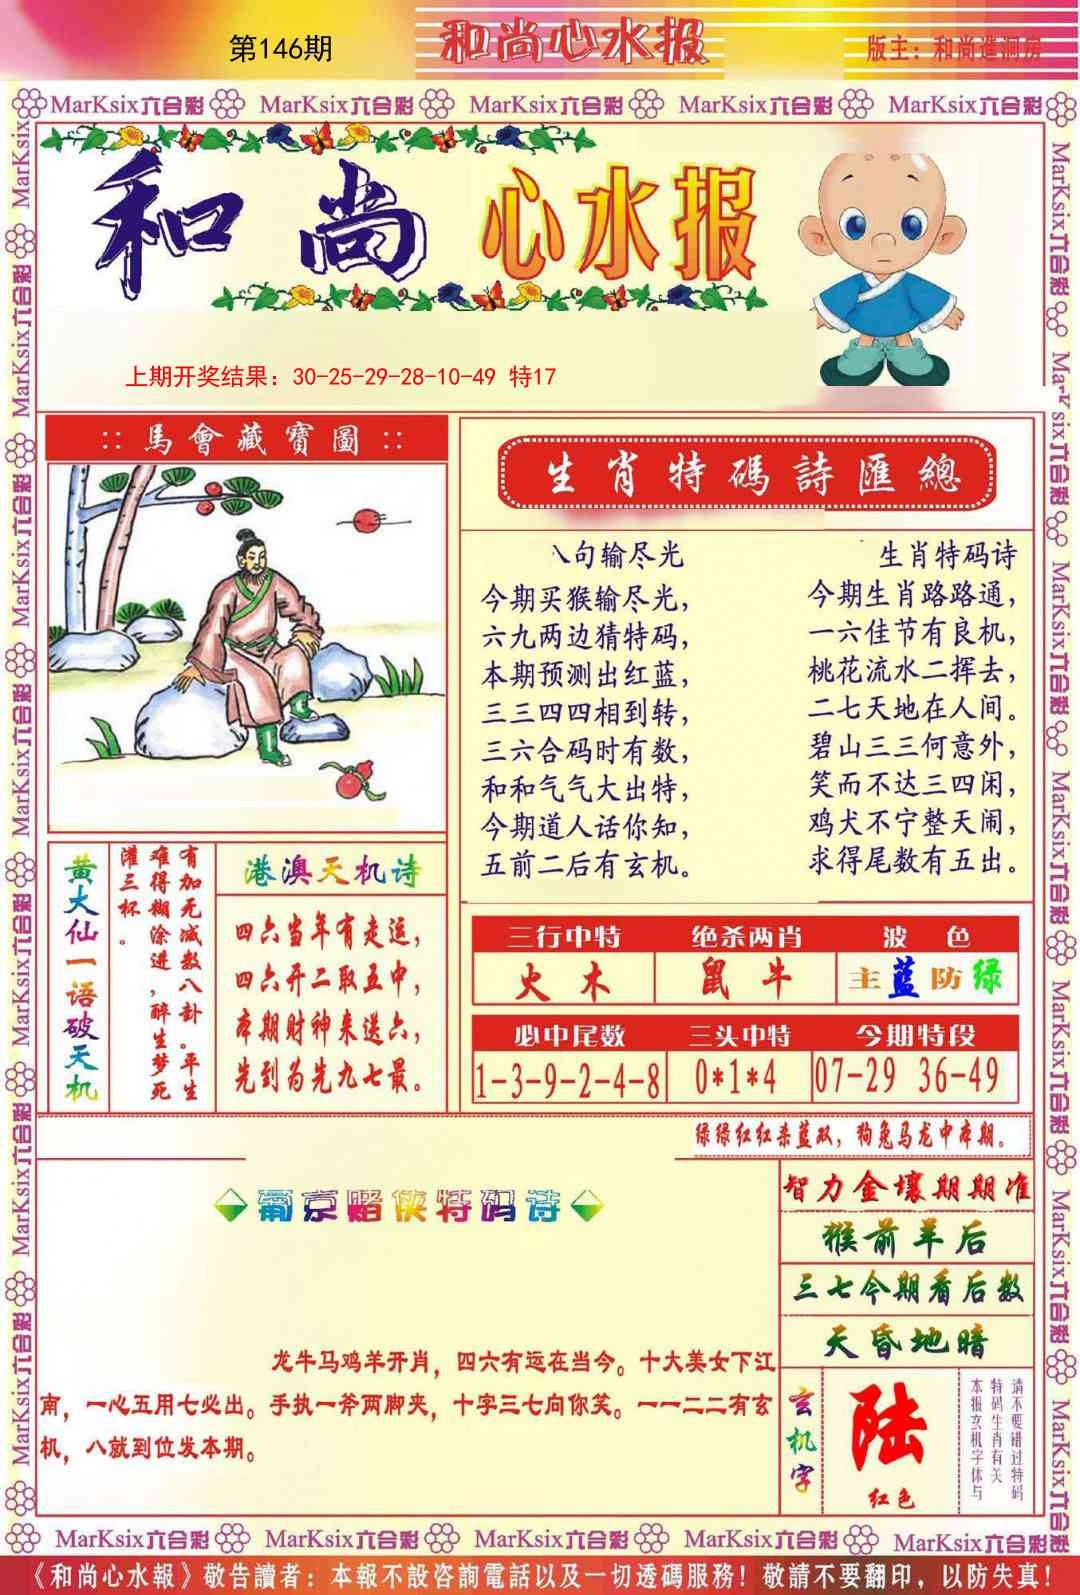 第146期
和尚心水报
版主：和尚進洞房
MarKsix六合彩 MarKsix六合彩 MarKsix六合彩 MarKsix六合彩 MarKsix六合彩
和尚心水报
上期开奖结果：30-25-29-28-10-49 特17
:: 馬會藏寶圖 ::
生肖特碼詩匯總
八句输尽光
今期买猴输尽光，
六九两边猜特码，
本期预测出红蓝，
三三四四相到转，
三六合码时有数，
和和气气大出特，
今期道人话你知，
五前二后有玄机。
生肖特码诗
今期生肖路路通，
一六佳节有良机，
桃花流水二挥去，
二七天地在人间。
碧山三三何意外，
笑而不达三四闲，
鸡犬不宁整天闹，
求得尾数有五出。
黄大仙一语破天机
有加无减数八卦。平生
难得糊涂进，醉生梦死
灌三杯。
港澳天机诗
四六当年有走运，
四六开二取五中，
本期财神来送六，
先到为先九七最。
三行中特 绝杀两肖 波色
火木 鼠牛 主蓝防绿
必中尾数 三头中特 今期特段
1-3-9-2-4-8 0*1*4 07-29 36-49
绿绿红红杀蓝双，狗兔马龙中本期。
葡京赌侠特码诗
龙牛马鸡羊开肖，四六有运在当今。十大美女下江
南，一心五用七必出。手执一斧两脚夹，十字三七向你笑。一一二二有玄
机，八就到位发本期。
智力金壤期期准
猴前羊后
三七今期看后数
天昏地暗
玄机字
陆
红色
请不要错过特码
特码生肖有关
本报玄机字体与
MarKsix六合彩 MarKsix六合彩 MarKsix六合彩 MarKsix六合彩 MarKsix六合彩
《和尚心水報》敬告讀者：本報不設咨詢電話以及一切透碼服務！敬請不要翻印，以防失真！